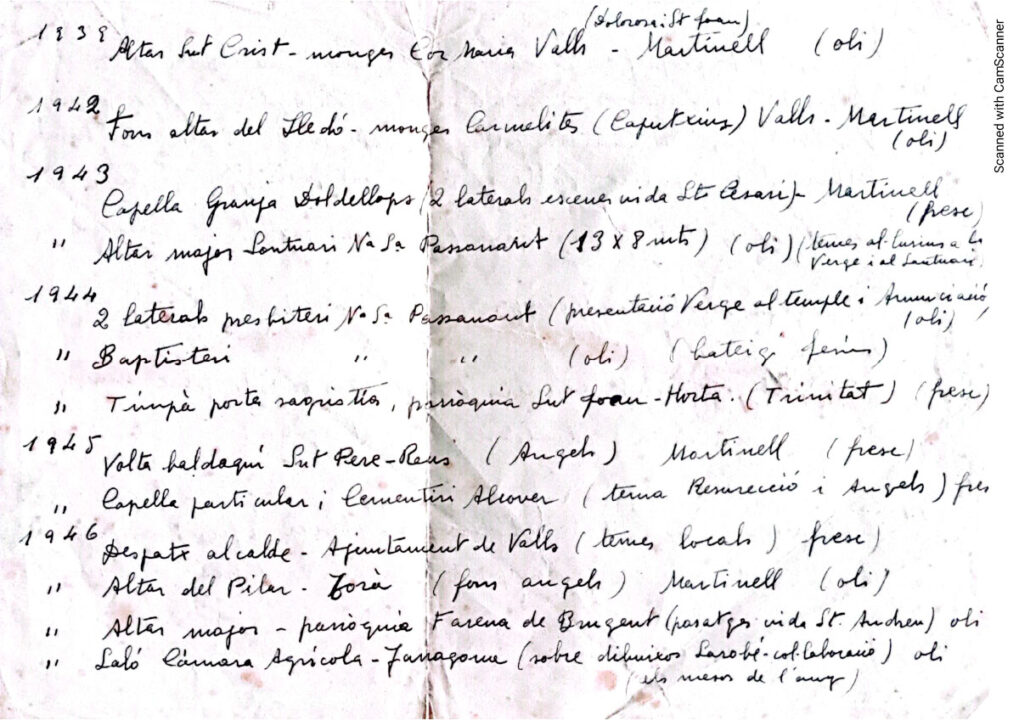 1939 Altar Snt Crist - monges Cor Maria Valls - Martinell (oli)
(Dolorosa i St Joan)
1942
Fons altar del Lledó - monges Carmelites (Caputxins) Valls - Martinell
(oli)
1943
Capella Granja Doldellops (2 laterals escenes vida St Cesari) - Martinell
(fresc)
" Altar major Santuari Na Sa Passanant (13 x 8 mts) (oli) (temes al·lusius a la
Verge i al Santuari)
1944
2 laterals presbiteri Na Sa Passanant (presentació Verge al temple i Anunciació)
(oli)
" Baptisteri " " (oli) (bateig Jesus)
" Timpà porta sagristia, parròquia Snt Joan - Horta. (Trinitat) (fresc)
1945
Volta baldaquí Snt Pere - Reus (Angels) Martinell (fresc)
" Capella particular i Cementiri Alcover (tema Resurecció i Angels) fres
1946
Despatx alcalde - Ajuntament de Valls (temes locals) fresc)
" Altar del Pilar - Torà (fons angels) Martinell (oli)
" Altar major - parròquia Farena de Brugent (passatges vida St. Andreu) oli
" Saló Càmara Agrícola - Tarragona (sobre dibuixos Sarobé - col·laboració) oli
(els mesos de l'any)
Scanned with CamScanner